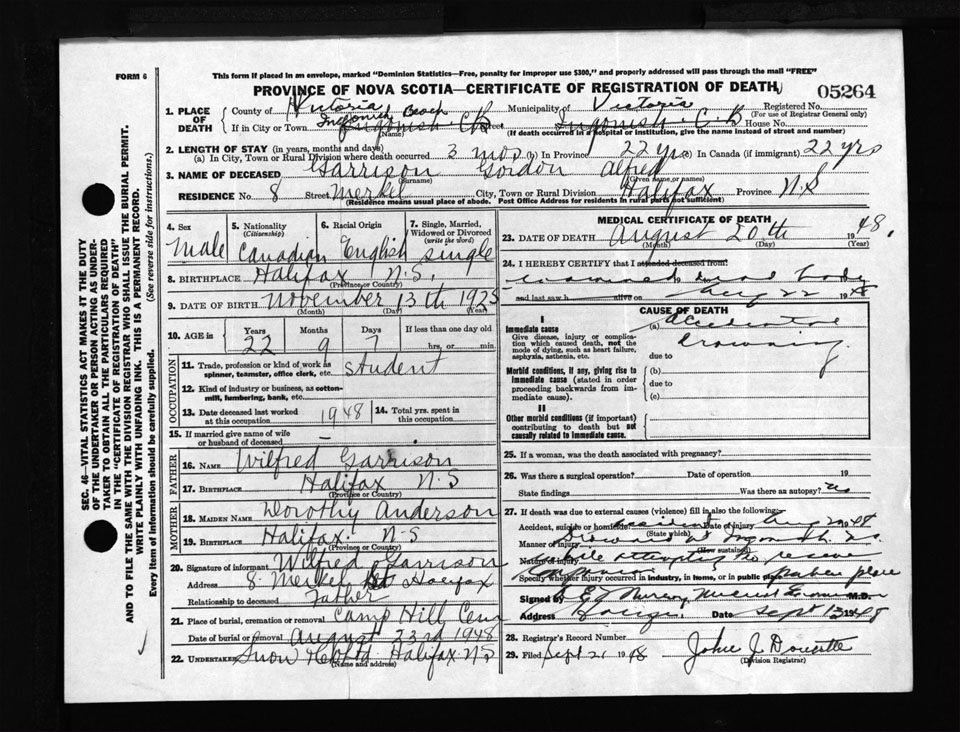 FORM 6
This form if placed in an envelope, marked "Dominion Statistics—Free, penalty for improper use $300," and properly addressed will pass through the mail "FREE"
PROVINCE OF NOVA SCOTIA—CERTIFICATE OF REGISTRATION OF DEATH
05264
1. PLACE OF DEATH County of Victoria Municipality of Victoria Registered No. (For use of Registrar General only)
If in City or Town Ingonish Beach Ingonish C B Street Ingonish C.B House No.
(Name) (If death occurred in a hospital or institution, give the name instead of street and number)
2. LENGTH OF STAY (in years, months and days)
(a) In City, Town or Rural Division where death occurred 3 mos (b) In Province 22 yrs (c) In Canada (if immigrant) 22 yrs
3. NAME OF DECEASED Garrison Gordon Alfred
(Surname) (Given name or names)
RESIDENCE No. 8 Street Merkel City, Town or Rural Division Halifax Province N.S
(Residence means usual place of abode. Post Office Address for residents in rural parts not sufficient)
4. Sex 5. Nationality (Citizenship) 6. Racial Origin 7. Single, Married, Widowed or Divorced (write the word)
Male Canadian English single
8. BIRTHPLACE Halifax N.S.
(Province or Country)
9. DATE OF BIRTH November 13th 1925
(Month) (Day) (Year)
10. AGE in Years Months Days If less than one day old
22 9 7 hrs. or min.
OCCUPATION
11. Trade, profession or kind of work as spinner, teamster, office clerk, etc. student
12. Kind of industry or business, as cotton-mill, lumbering, bank, etc.
13. Date deceased last worked at this occupation 1948 14. Total yrs. spent in this occupation
15. If married give name of wife or husband of deceased —
FATHER
16. NAME Wilfred Garrison
17. BIRTHPLACE Halifax N.S
(Province or Country)
MOTHER
18. MAIDEN NAME Dorothy Anderson
19. BIRTHPLACE Halifax N-S
(Province or Country)
20. Signature of informant Wilfred Garrison
Address 8 Merkel St Halifax
Relationship to deceased Father
21. Place of burial, cremation or removal Camp Hill Cem
Date of burial or removal August 23rd 1948
22. UNDERTAKER Snow & Co Ltd Halifax N.S
(Name and address)
MEDICAL CERTIFICATE OF DEATH
23. DATE OF DEATH August 20th 1948.
(Month) (Day) (Year)
24. I HEREBY CERTIFY that I attended deceased from:
to dead body
and last saw h alive on Aug 22 1948
CAUSE OF DEATH
I
Immediate cause
Give disease, injury or complication which caused death, not the mode of dying, such as heart failure, asphyxia, asthenia, etc.
(a) Accidental Drowning
due to
Morbid conditions, if any, giving rise to immediate cause (stated in order proceeding backwards from immediate cause).
(b)
due to
(c)
II
Other morbid conditions (if important) contributing to death but not causally related to immediate cause.
25. If a woman, was the death associated with pregnancy?
26. Was there a surgical operation? Date of operation 19
State findings Was there an autopsy? No
27. If death was due to external causes (violence) fill in also the following:
Accident, suicide or homicide? Accident Date of injury Aug 20 1948
(State which)
Manner of injury Drowned at Ingonish N.S.
(How sustained)
Nature of injury while attempting to rescue
companion
Specify whether injury occurred in industry, in home, or in public place public place
Signed by Murray Medical Examiner M.D.
Address Date Sept 13 1948
28. Registrar's Record Number
29. Filed Sept 21 1948 John J Doucette
(Division Registrar)
SEC. 46—VITAL STATISTICS ACT MAKES IT THE DUTY
OF THE UNDERTAKER OR PERSON ACTING AS UNDERTAKER TO OBTAIN ALL THE PARTICULARS REQUIRED
IN THE "CERTIFICATE OF REGISTRATION OF DEATH"
AND TO FILE THE SAME WITH THE DIVISION REGISTRAR WHO SHALL ISSUE THE BURIAL PERMIT.
WRITE PLAINLY WITH UNFADING INK. THIS IS A PERMANENT RECORD.
Every item of information should be carefully supplied. (See reverse side for instructions.)